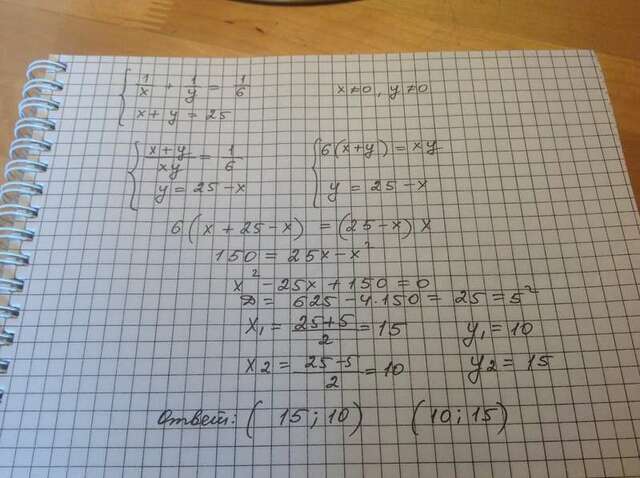 { 1/x + 1/y = 1/6     x ≠ 0, y ≠ 0
{ x + y = 25
{ (x+y)/(xy) = 1/6     { 6(x+y) = xy
{ y = 25 - x     { y = 25 - x
6(x + 25 - x) = (25 - x) x
150 = 25x - x²
x² - 25x + 150 = 0
D = 625 - 4·150 = 25 = 5²
x₁ = (25+5)/2 = 15     y₁ = 10
x₂ = (25-5)/2 = 10     y₂ = 15
Ответ: (15; 10)     (10; 15)